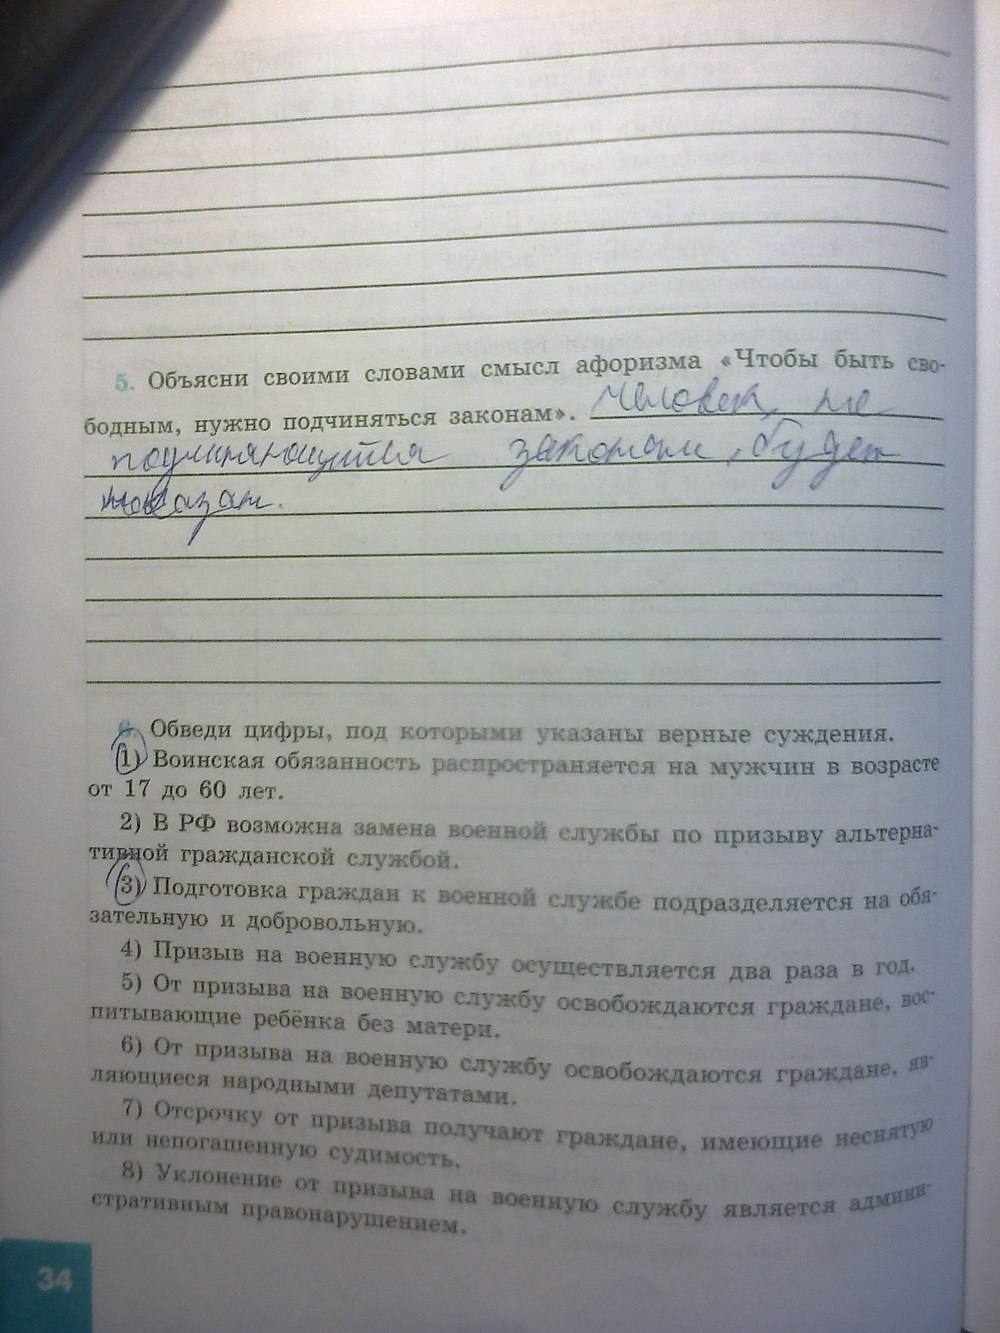 5. Объясни своими словами смысл афоризма «Чтобы быть сво-
бодным, нужно подчиняться законам». Человек, не
подчиняющийся законам, будет
наказан.
6. Обведи цифры, под которыми указаны верные суждения.
1) Воинская обязанность распространяется на мужчин в возрасте
от 17 до 60 лет.
2) В РФ возможна замена военной службы по призыву альтерна-
тивной гражданской службой.
3) Подготовка граждан к военной службе подразделяется на обя-
зательную и добровольную.
4) Призыв на военную службу осуществляется два раза в год.
5) От призыва на военную службу освобождаются граждане, вос-
питывающие ребёнка без матери.
6) От призыва на военную службу освобождаются граждане, яв-
ляющиеся народными депутатами.
7) Отсрочку от призыва получают граждане, имеющие неснятую
или непогашенную судимость.
8) Уклонение от призыва на военную службу является админи-
стративным правонарушением.
34